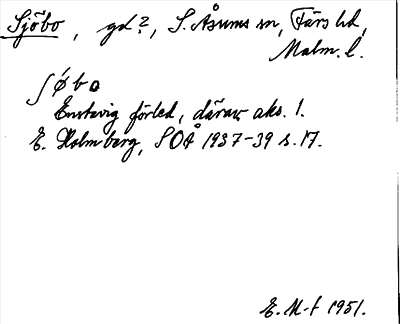 Sjöbo, gd?, S. Åsums sn, Färs hd,
Malm. l.
ʃǿbo
Enstavig förled, därav aks. 1.
E. Holmberg, SOÅ 1937-39 s. 17.
E. M-t 1951.